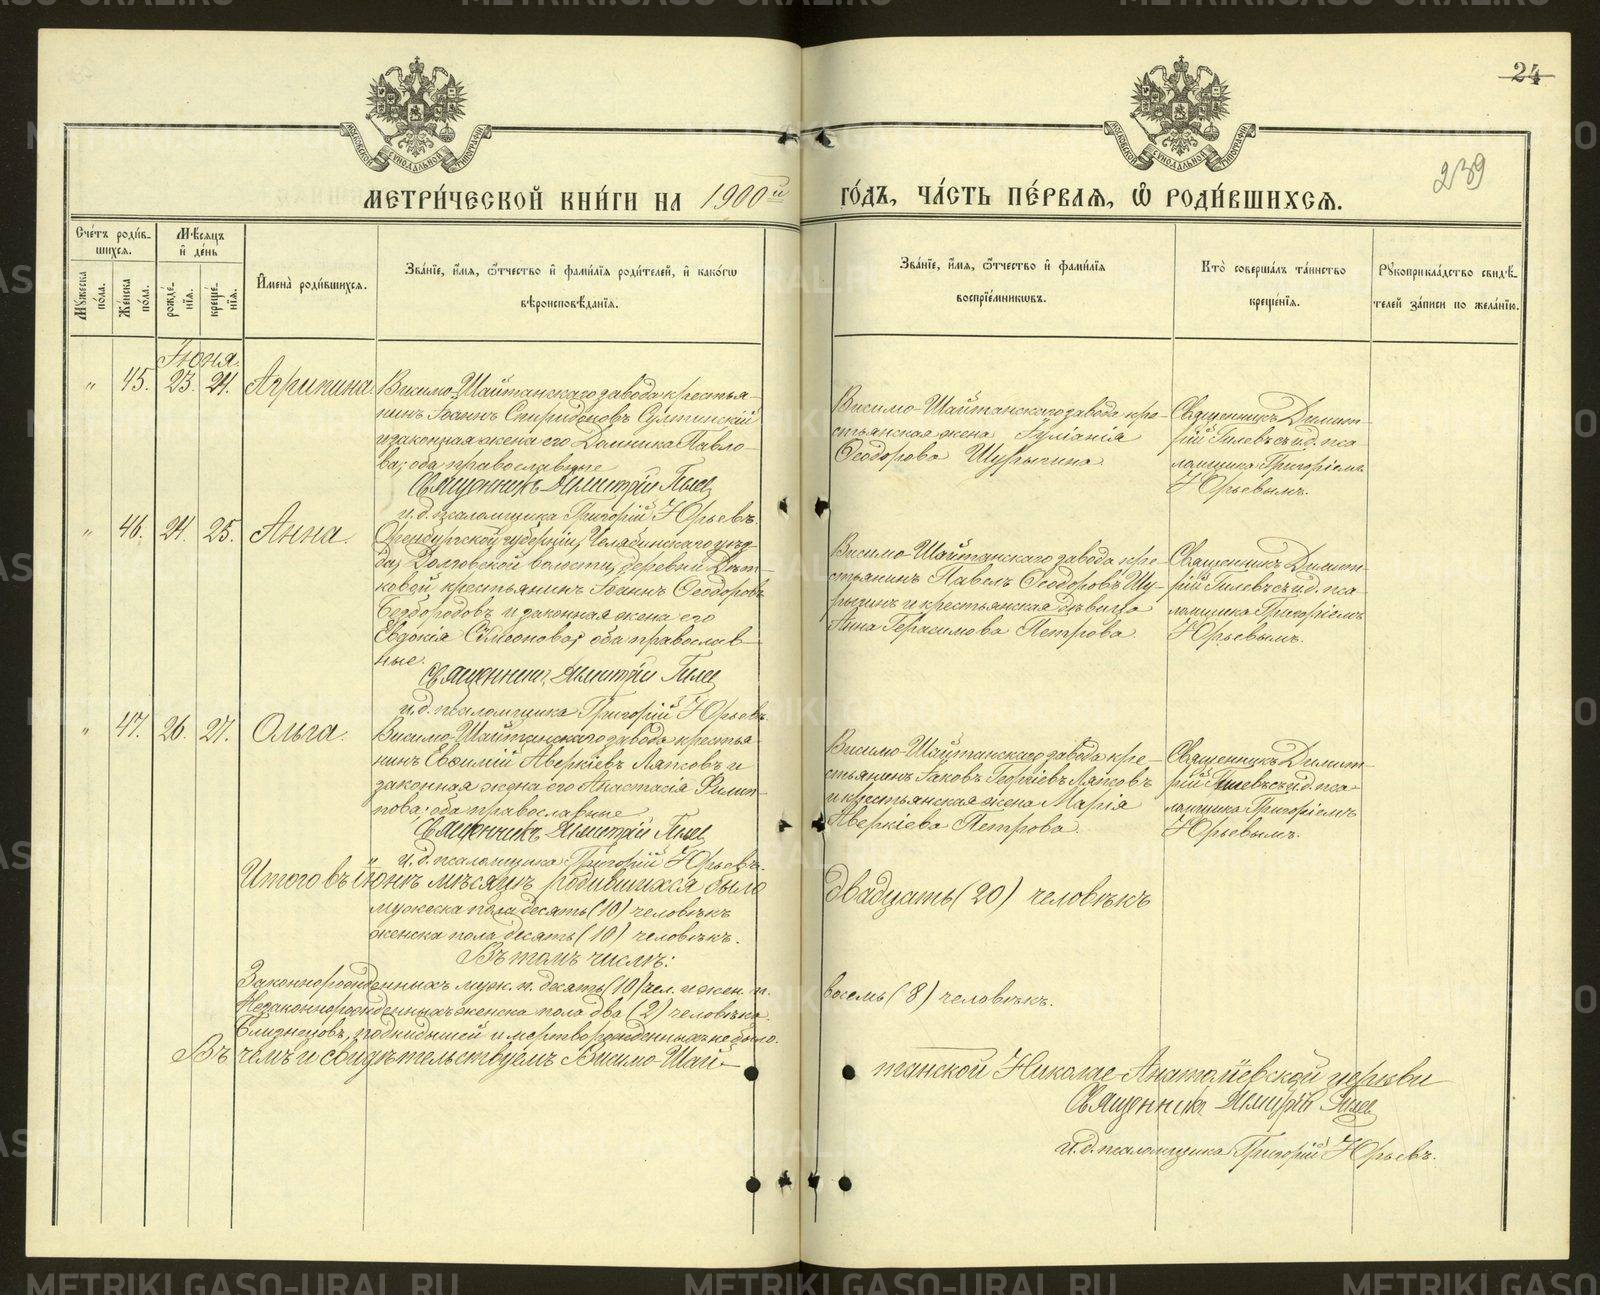 24
239
МОСКОВСКОЙ СѴНОДАЛЬНОЙ ТИПОГРАФІИ
МОСКОВСКОЙ СѴНОДАЛЬНОЙ ТИПОГРАФІИ
МЕТРИ́ЧЕСКОЙ КНИ́ГИ НА 1900й
ГО́ДЪ, ЧА́СТЬ ПЕ́РВАЯ, Ѡ҆ РОДИ́ВШИХСЯ.
Сче́тъ роди́в-
шихся.
Мѣ́сяцъ
и҆ де́нь
Мꙋ́жеска
по́ла.
Же́нска
по́ла.
рожде́-
нїя.
креще́-
нїя.
И҆мена̀ роди́вшихся.
Зва́нїе, и҆́мя, ѻ҆́тчество и҆ фами́лїя роди́телей, и҆ како́гѡ
вѣроисповѣ́данїя.
Зва́нїе, и҆́мя, ѻ҆́тчество и҆ фами́лїя
воспрїе́мникѡвъ.
Кто̀ соверша́лъ та́инство
креще́нїя.
Рꙋкоприкла́дство свидѣ́-
телей за́писи по жела́нїю.
Іюня.
" 45. 23. 24. Агрипина.
Висимо-Шайтанскаго завода крестья-
нинъ Іоаннъ Спиридоновъ Султинскій
и законная жена его Домника Павло-
ва; оба православные
Священникъ Димитрій Гилев
и.д. псаломщика Григорій Юрьевъ.
Висимо-Шайтанскаго завода кре-
стьянская жена Іуліанія
Ѳеодорова Шурыгина.
Священникъ Димит-
рій Гилевъ съ и.д. пса-
ломщика Григоріемъ
Юрьевымъ.
" 46. 24. 25. Анна.
Оренбургской губерніи, Челябинскаго уѣз-
да, Долговской волости, деревни Дѣт-
ковой крестьянинъ Іоаннъ Ѳеодоровъ
Бездородовъ и законная жена его
Евдокія Симеонова; оба православ-
ные.
Священник Димитрій Гилев
и.д. псаломщика Григорій Юрьевъ.
Висимо-Шайтанскаго завода кре-
стьянинъ Павелъ Ѳеодоровъ Шу-
рыгинъ и крестьянская дѣвица
Анна Герасимова Петрова.
Священникъ Димит-
рій Гилевъ съ и.д. пса-
ломщика Григоріемъ
Юрьевымъ.
" 47. 26. 27. Ольга.
Висимо-Шайтанскаго завода крестья-
нинъ Евѳимій Аверкіевъ Ляпсовъ и
законная жена его Анастасія Филип-
пова; оба православные
Священникъ Димитрій Гилев
и.д. псаломщика Григорій Юрьевъ.
Висимо-Шайтанскаго завода кре-
стьянинъ Іаковъ Георгіевъ Ляпсовъ
и крестьянская жена Марія
Аверкіева Петрова.
Священникъ Димит-
рій Гилевъ съ и.д. пса-
ломщика Григоріемъ
Юрьевымъ.
Итого въ іюнѣ мѣсяцѣ родившихся было
двадцать (20) человѣкъ
мужеска пола десять (10) человѣкъ
женска пола десять (10) человѣкъ.
Въ томъ числѣ:
Законнорожденныхъ муж. п. десять (10) чел. и жен. п.
восемь (8) человѣкъ.
Незаконнорожденныхъ женска пола два (2) человѣка.
Близнецовъ, подкидышей и мертворожденныхъ не было.
Въ чемъ и свидѣтельствуемъ Висимо-Шай-
танской Николае-Анатоліевской церкви
Священникъ Димитрій Гилев
и.д. псаломщика Григорій Юрьевъ.
METRIKI.GASO-URAL.RU